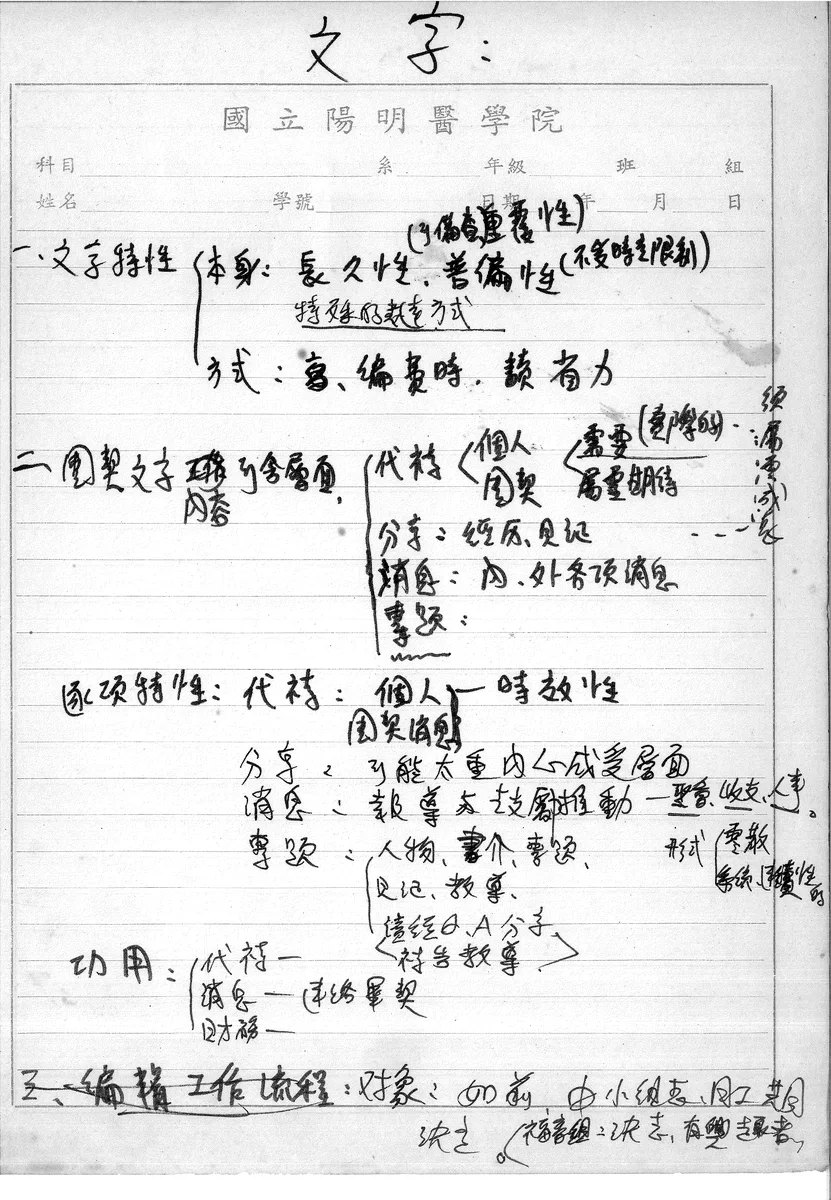 文字:
國立陽明醫學院
科目 系 年級 班 組
姓名 學號 日期 年 月 日
(可備查重覆性)
一、文字特性 本身: 長久性、普偏性(不受時空限制)
特殊的表達方式
方式: 寫、編費時.讀省力
二、團契文字 可含層面,
內容
代禱 個人 需要(實際的)
團契 屬靈期待
分享: 經历、見証
消息: 內、外各項消息
專題:
逐項特性: 代禱: 個人 一 時效性
團契消息
分享: 可能太重內心感受層面
消息: 報導与鼓勵推動 一 聚會、收支、人事。
專題: 人物、書介、專題、 形式 零散
見証、教導、 系統、連續性的
讀經Q、A分享
禱告教導
功用: 代禱一
消息一連絡團契
財務一
三、編輯工作流程: 對象: 如前 由小組長、同工
決定。 福音組: 決志、有興趣者